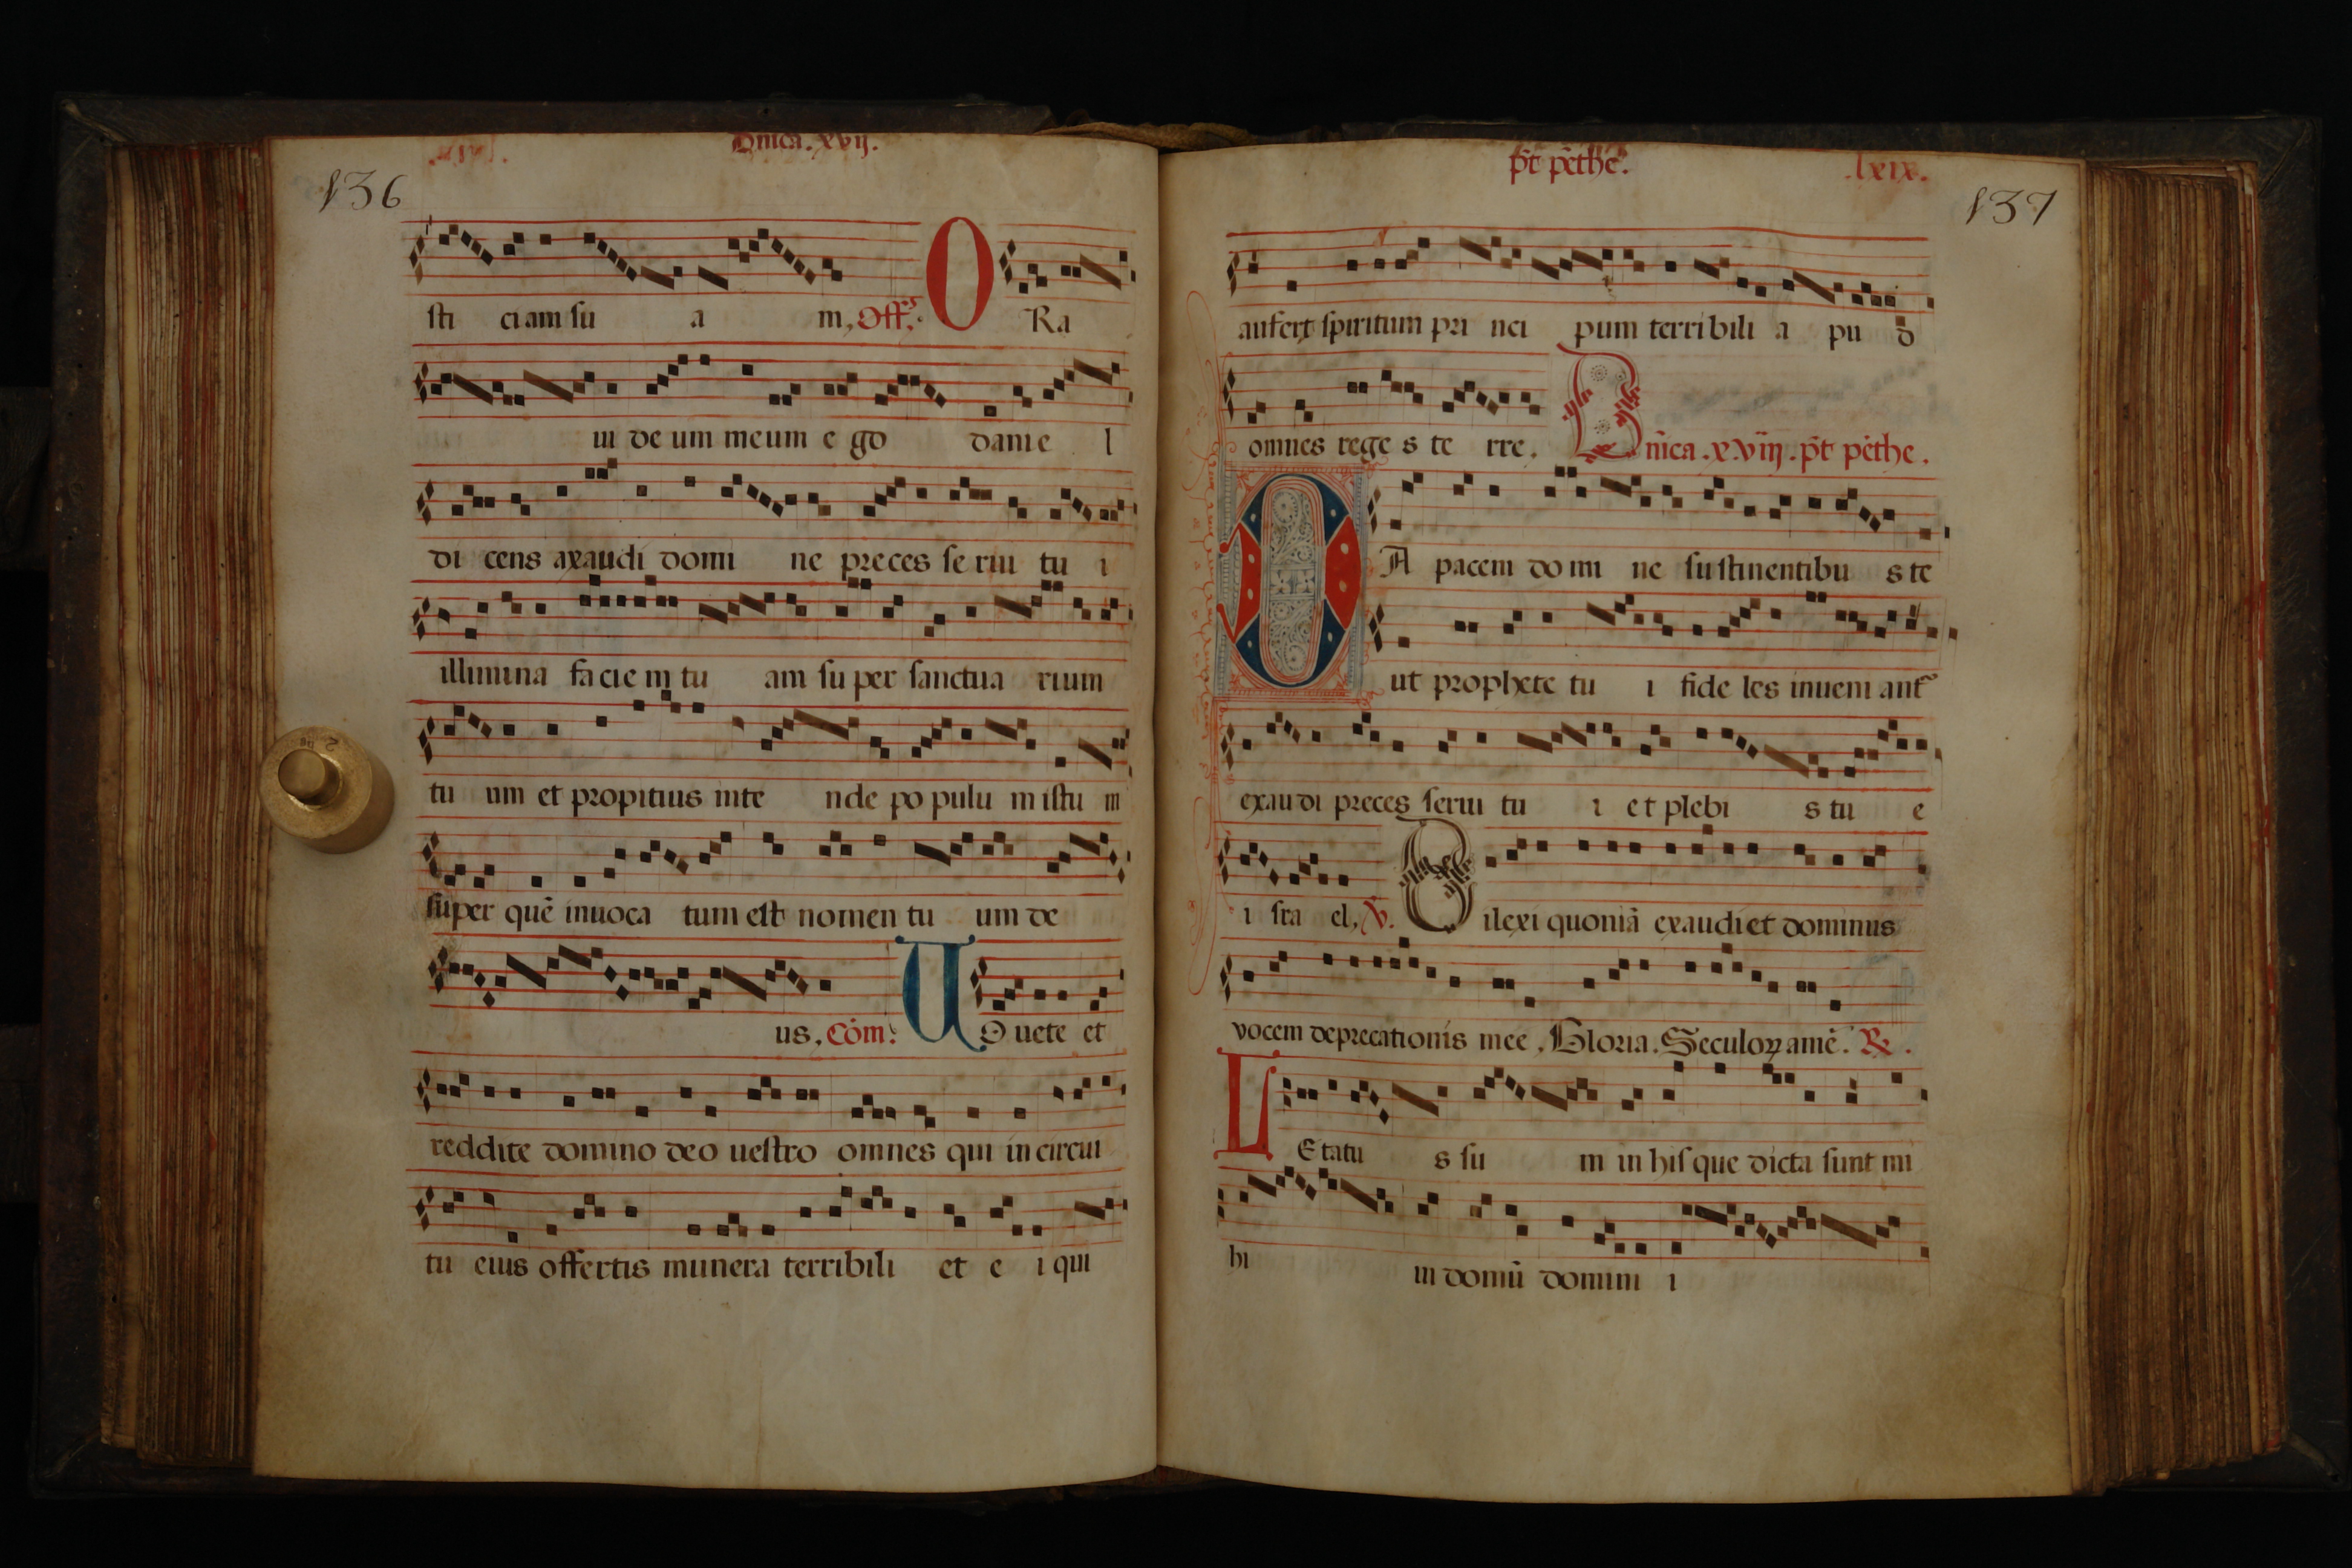 Dñica. xvij.
136
sti ciam su a m, Off.
O Ra
ui de um meum e go danie l
di cens axaudi domi ne preces se rui tu i
illumina faciem tu am su per sanctua rium
tu um et propitius inte nde po pulu m istu m
super quē inuoca tum est nomen tu um de
us, Cōm. U Ouete et
reddite domino deo uestro omnes qui in circui
tu eius offertis munera terribili et e i qui
p̄t pēthe. lxix.
137
aufert spiritum pri nci pum terribili a pu d
omnes rege s te rre. Dn̄ica. xviij. p̄t pēthe.
DA pacem do mi ne sustinentibu s te
ut prophete tu i fide les inueni ant
exaudi preces serui tu i et plebi s tu e
i sra el, V. Dilexi quoniā exaudiet dominus
vocem deprecationis mee. Gloria. Seculoꝝ amē. R.
LEtatu s su m in his que dicta sunt mi
hi in domū domini i